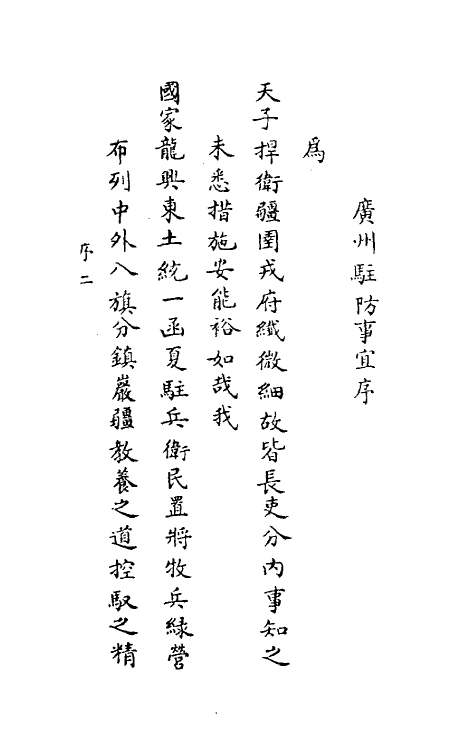 廣州駐防事宜序
爲
天子捍衛疆圉戎府纖微細故皆長吏分內事知之
未悉措施安能裕如哉我
國家龍興東土統一函夏駐兵衛民置將牧兵綠營
布列中外八旗分鎮巖疆教養之道控馭之精
序二